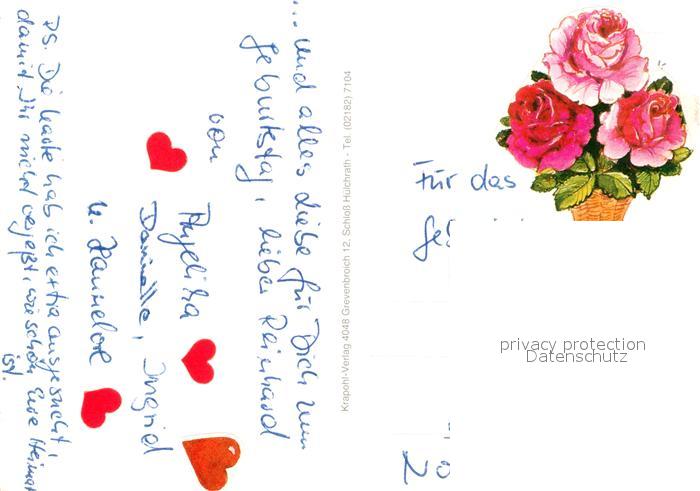 ... und alles Liebe für Dich zum
Geburtstag, lieber Reinhard
von
Angelika
Danielle, Ingrid
u. Hannelore
PS. Die Karte hab ich extra ausgesucht,
damit Ihr nicht vergeßt, wie schön Eure Heimat
ist.
Krapohl-Verlag 4048 Grevenbroich 12, Schloß Hülchrath - Tel. (02182) 7104
Für das
privacy protection
Datenschutz